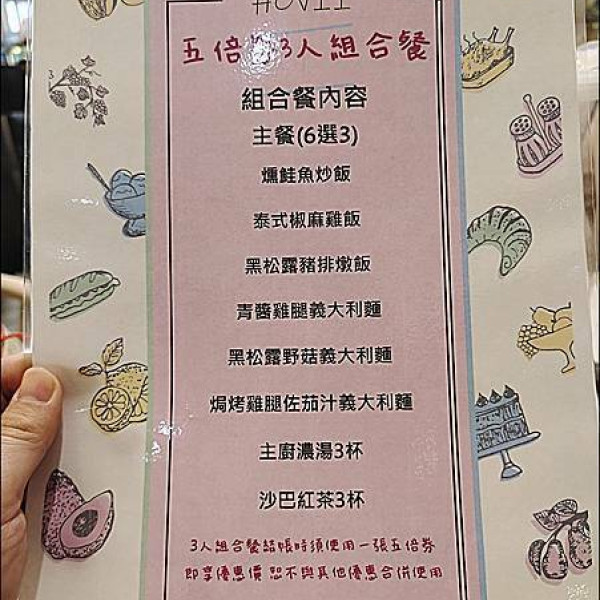 HOVII
五倍券3人組合餐
組合餐內容
主餐(6選3)
燻鮭魚炒飯
泰式椒麻雞飯
黑松露豬排燉飯
青醬雞腿義大利麵
黑松露野菇義大利麵
焗烤雞腿佐茄汁義大利麵
主廚濃湯3杯
沙巴紅茶3杯
3人組合餐結帳時須使用一張五倍券
即享優惠價 恕不與其他優惠合併使用